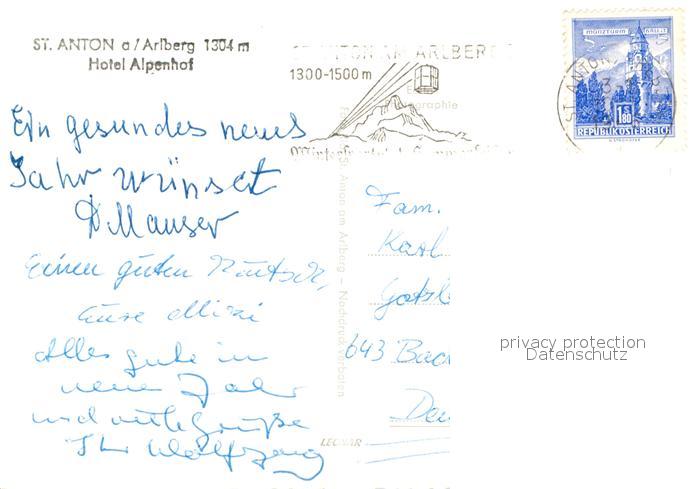 ST. ANTON a/Arlberg 1304 m
Hotel Alpenhof
ST. ANTON AM ARLBERG
1300-1500 m
MÜNZTURM HALL i. T.
ST. ANTON
1.80
REPUBLIK ÖSTERREICH
Ein gesundes neues
Jahr wünscht
D. Mauser
Einen guten Rutsch,
eure Mizi
Alles gute im
neuen Jahr
und viele Grüße
Ihr Wolfgang
St. Anton am Arlberg – Nachdruck verboten
LEOMAR
Fam.
Karl
643 Bad
privacy protection
Datenschutz